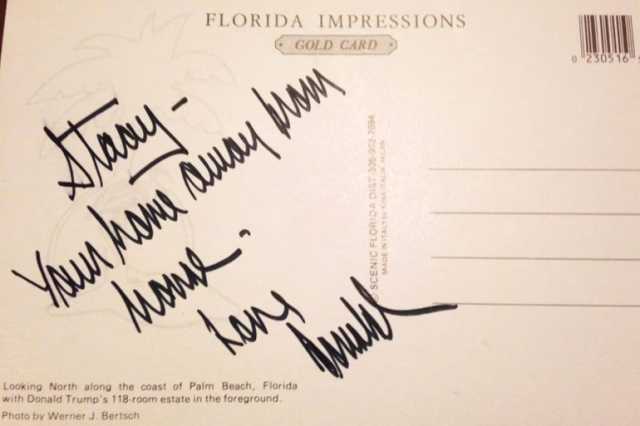 FLORIDA IMPRESSIONS
GOLD CARD
0 230516
Stacy-
Your home away from
home.
Love,
Donald
SCENIC FLORIDA DIST.
MADE IN ITALY
Looking North along the coast of Palm Beach, Florida
with Donald Trump's 118-room estate in the foreground.
Photo by Werner J. Bertsch